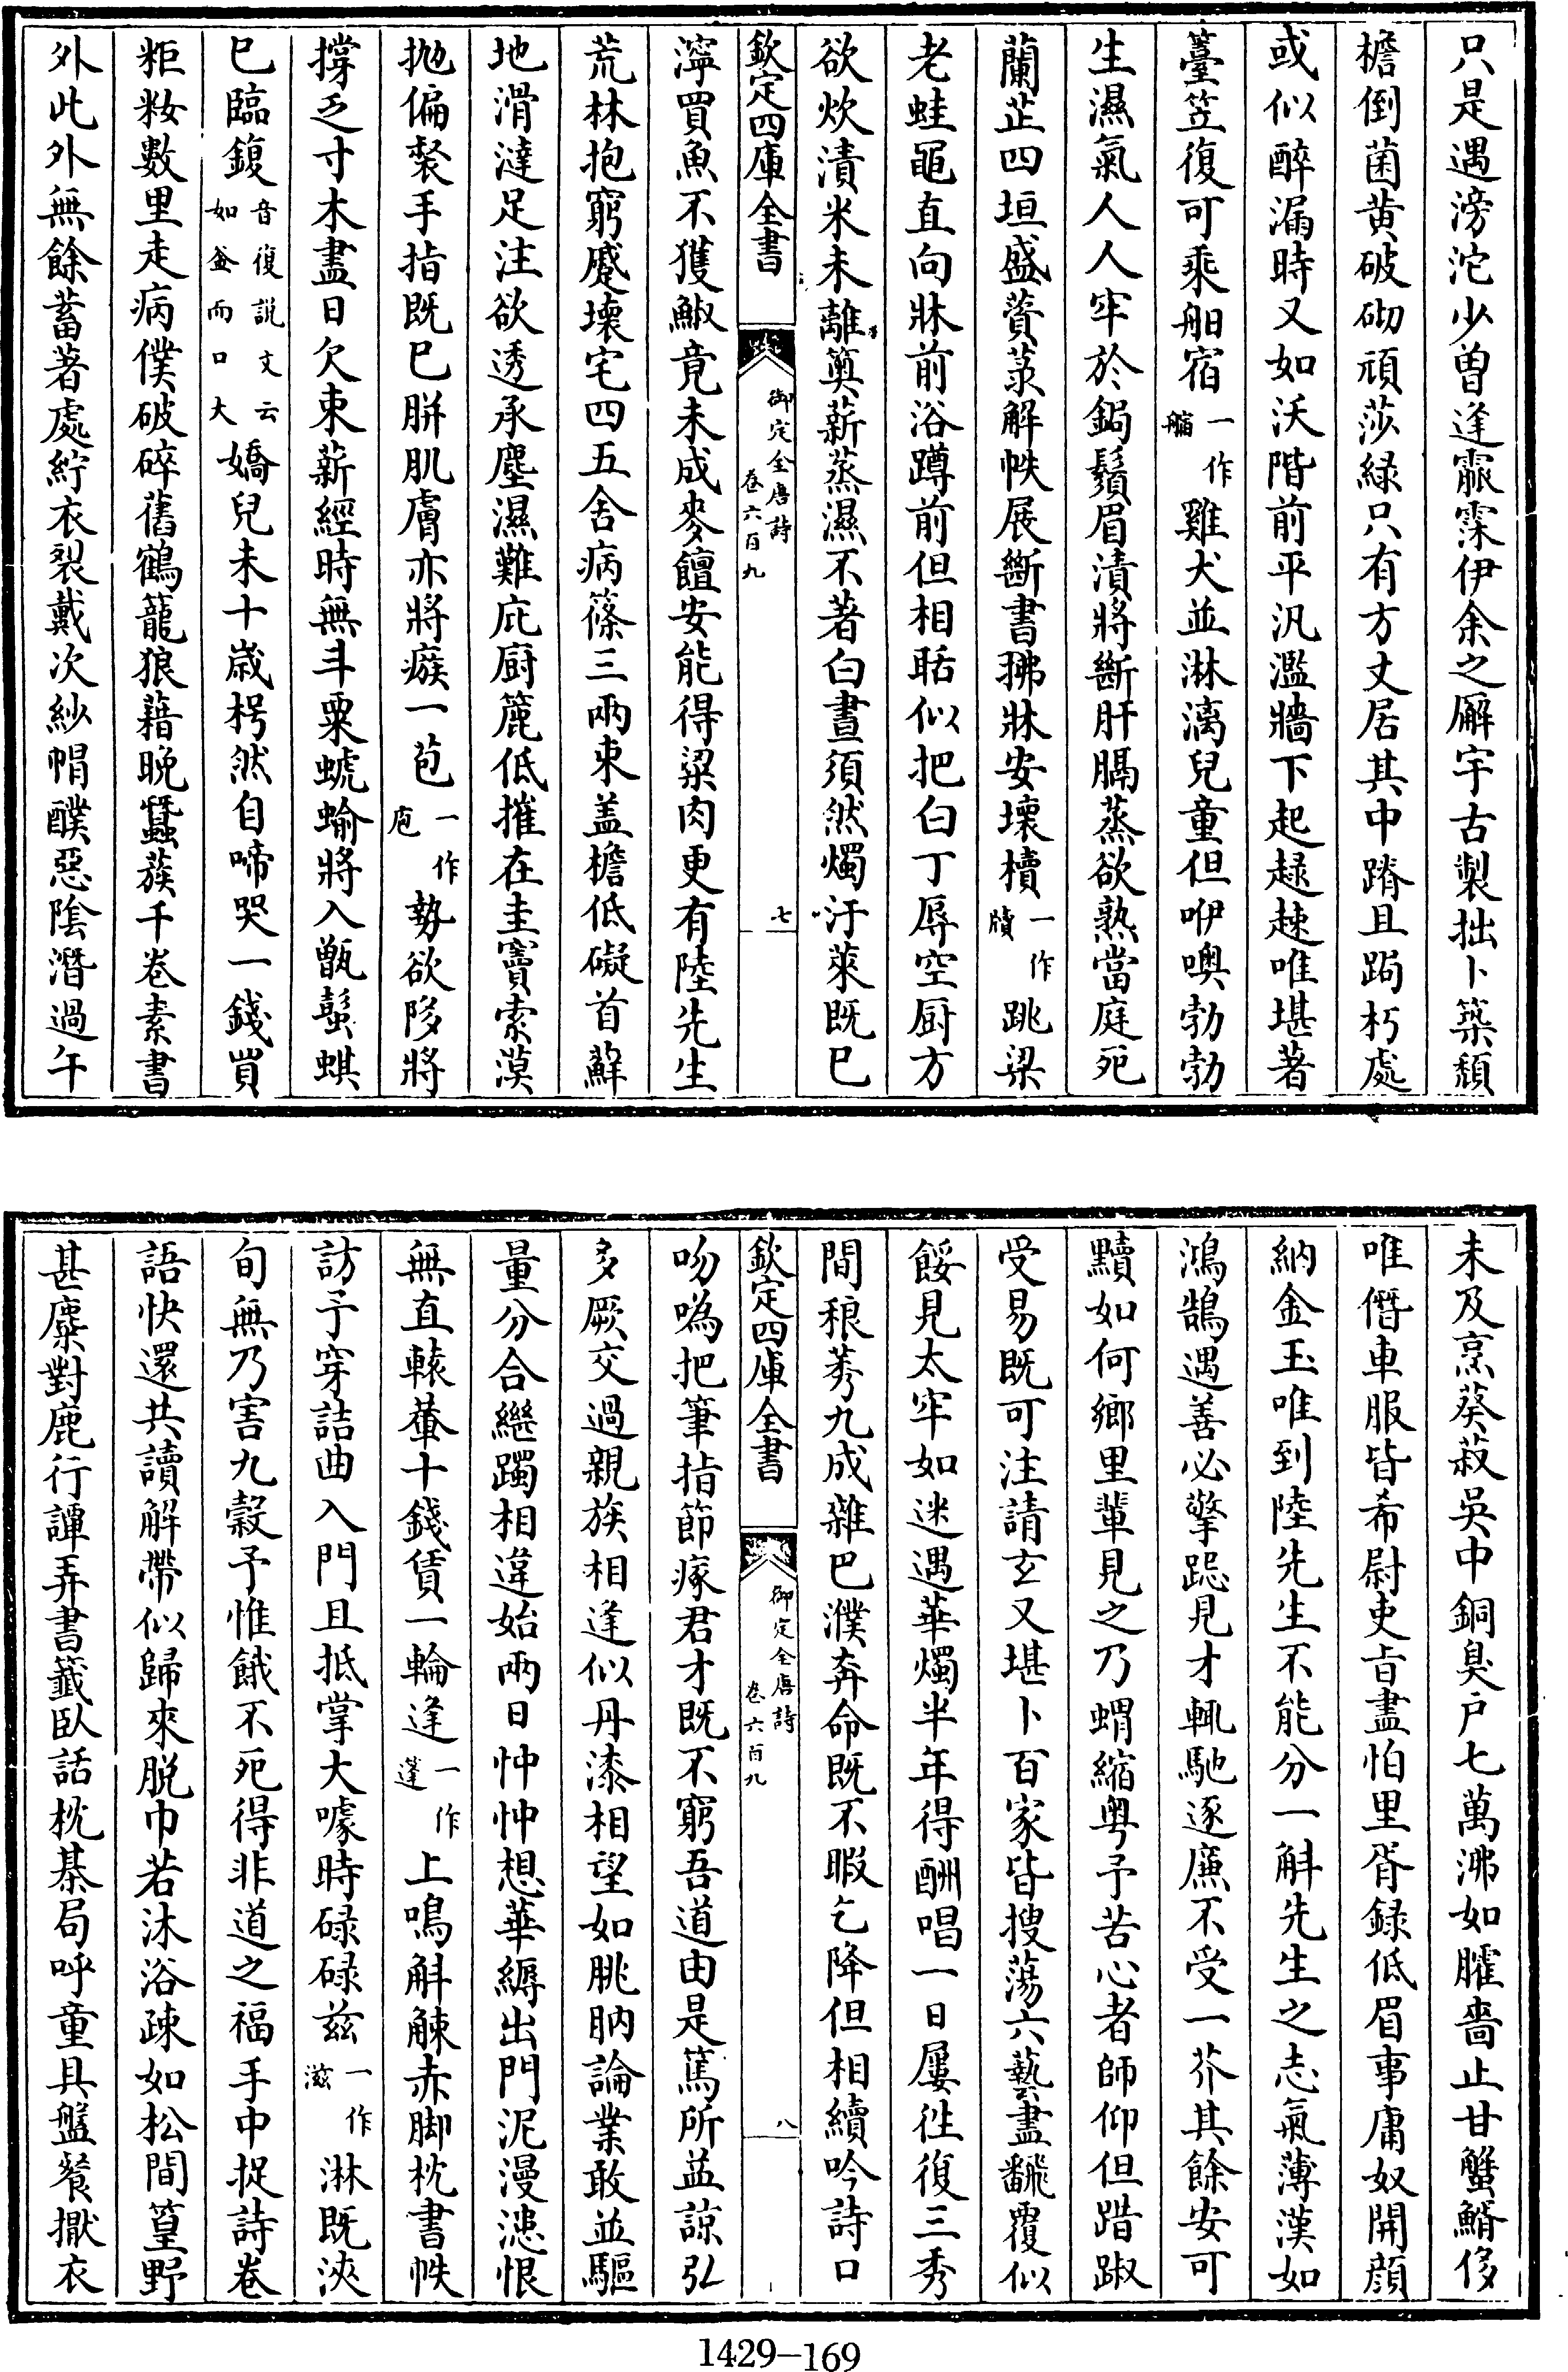 只是遇滂沱少曾逢霢霂伊余之廨宇古製拙卜築頹
檐倒菌黄破砌頑莎緑只有方丈居其中蹐且跼朽處
或似醉漏時又如沃階前平汎濫牆下起趢趚唯堪著
簦笠復可乘舶宿一作艑雞犬並淋漓兒童但咿噢勃勃
生濕氣人人牢於鋦鬚眉漬將斷肝膈蒸欲熟當庭死
蘭芷四垣盛薋菉解帙展斷書拂牀安壞櫝一作牘跳梁
老蛙黽直向牀前浴蹲前但相聒似把白丁辱空厨方
欲炊漬米未離䉛薪蒸濕不著白晝須然燭汙萊既已
欽定四庫全書 御定全唐詩 卷六百九 七
濘買魚不獲鮛竟未成麥饘安能得粱肉更有陸先生
荒林抱窮蹙壞宅四五舍病篠三兩束盖檐低礙首蘚
地滑澾足注欲透承塵濕難庇厨簏低摧在圭竇索漠
抛偏裻手指既已胼肌膚亦將瘯一苞一作庖勢欲陊將
撐乏寸木盡日欠束薪經時無斗粟虒蝓將入甑蟚蜞
已臨鍑音復說文云如釜而口大嬌兒未十歳枵然自啼哭一錢買
粔籹數里走病僕破碎舊鶴籠狼藉晩蠶蔟千卷素書
外此外無餘蓄著處紵衣裂戴次紗㡌醭惡陰潛過午
未及烹葵菽吳中銅臭戶七萬沸如臛嗇止甘蟹鰖侈
唯僭車服皆希尉吏旨盡怕里胥録低眉事庸奴開顔
納金玉唯到陸先生不能分一斛先生之志氣薄漢如
鴻鵠遇善必擎跽見才輒馳逐廉不受一芥其餘安可
黷如何鄉里輩見之乃蝟縮粤予苦心者師仰但踖踧
受易既可注請玄又堪卜百家皆搜蕩六藝盡翻覆似
餒見太牢如迷遇華燭半年得酬唱一日屢徃復三秀
間稂莠九成雜巴濮奔命既不暇乞降但相續吟詩口
欽定四庫全書 御定全唐詩 卷六百九 八
吻㗾把筆指節瘃君才既不窮吾道由是篤所益諒弘
多厥交過親族相逢似丹漆相望如朓肭論業敢並驅
量分合繼躅相違始兩日忡忡想華縟出門泥漫漶恨
無直轅輂十錢賃一輪逢一作蓬上鳴斛觫赤脚枕書帙
訪予穿詰曲入門且抵掌大噱時碌碌兹一作滋淋既浹
旬無乃害九穀予惟餓不死得非道之福手中捉詩卷
語快還共讀解帶似歸來脱巾若沐浴疎如松間篁野
甚麋對鹿行譚弄書籖臥話枕棊局呼童具盤餐擫衣
1429—169